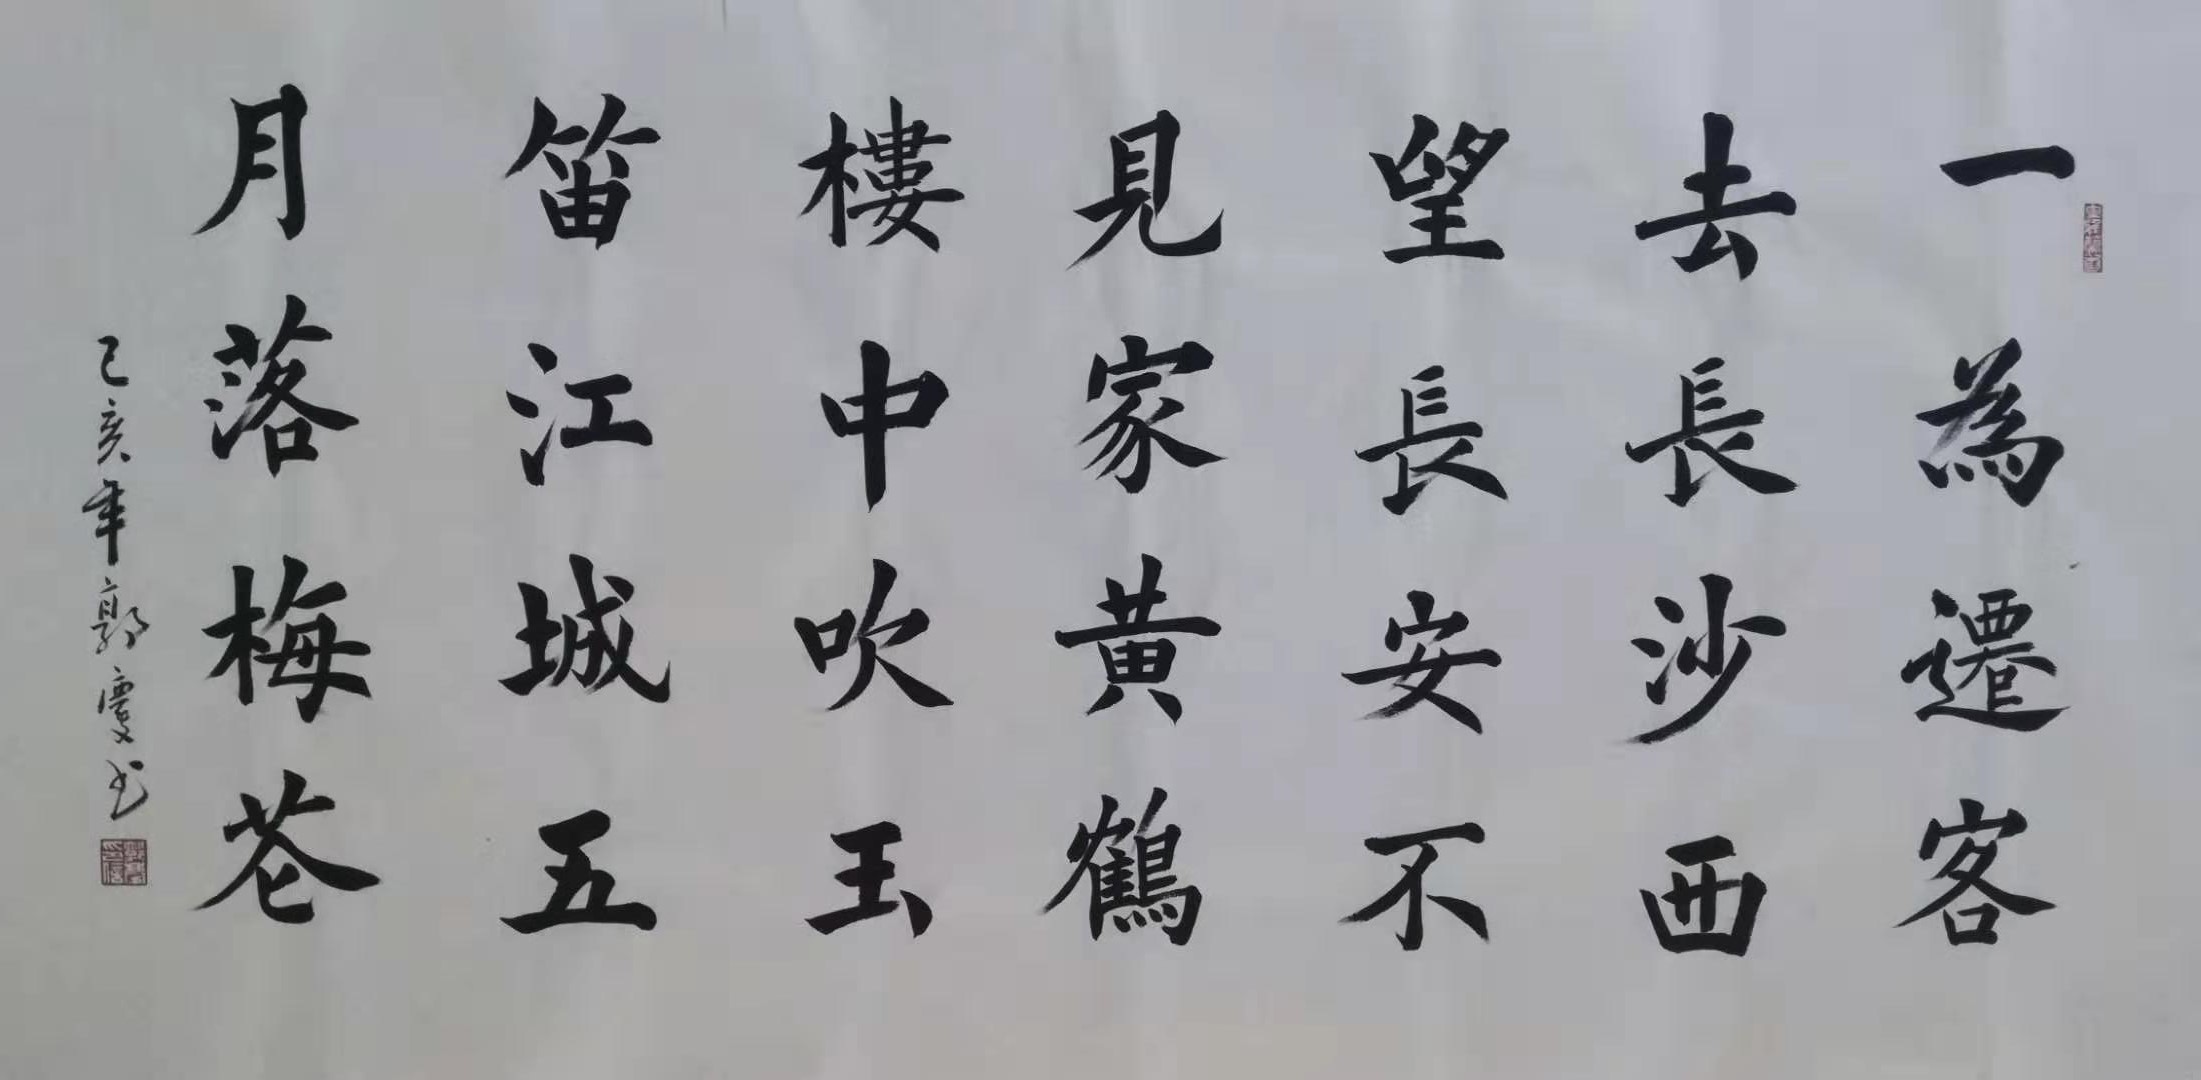 一為遷客
去長沙西
望長安不
見家黃鶴
樓中吹玉
笛江城五
月落梅花
己亥年郭慶书